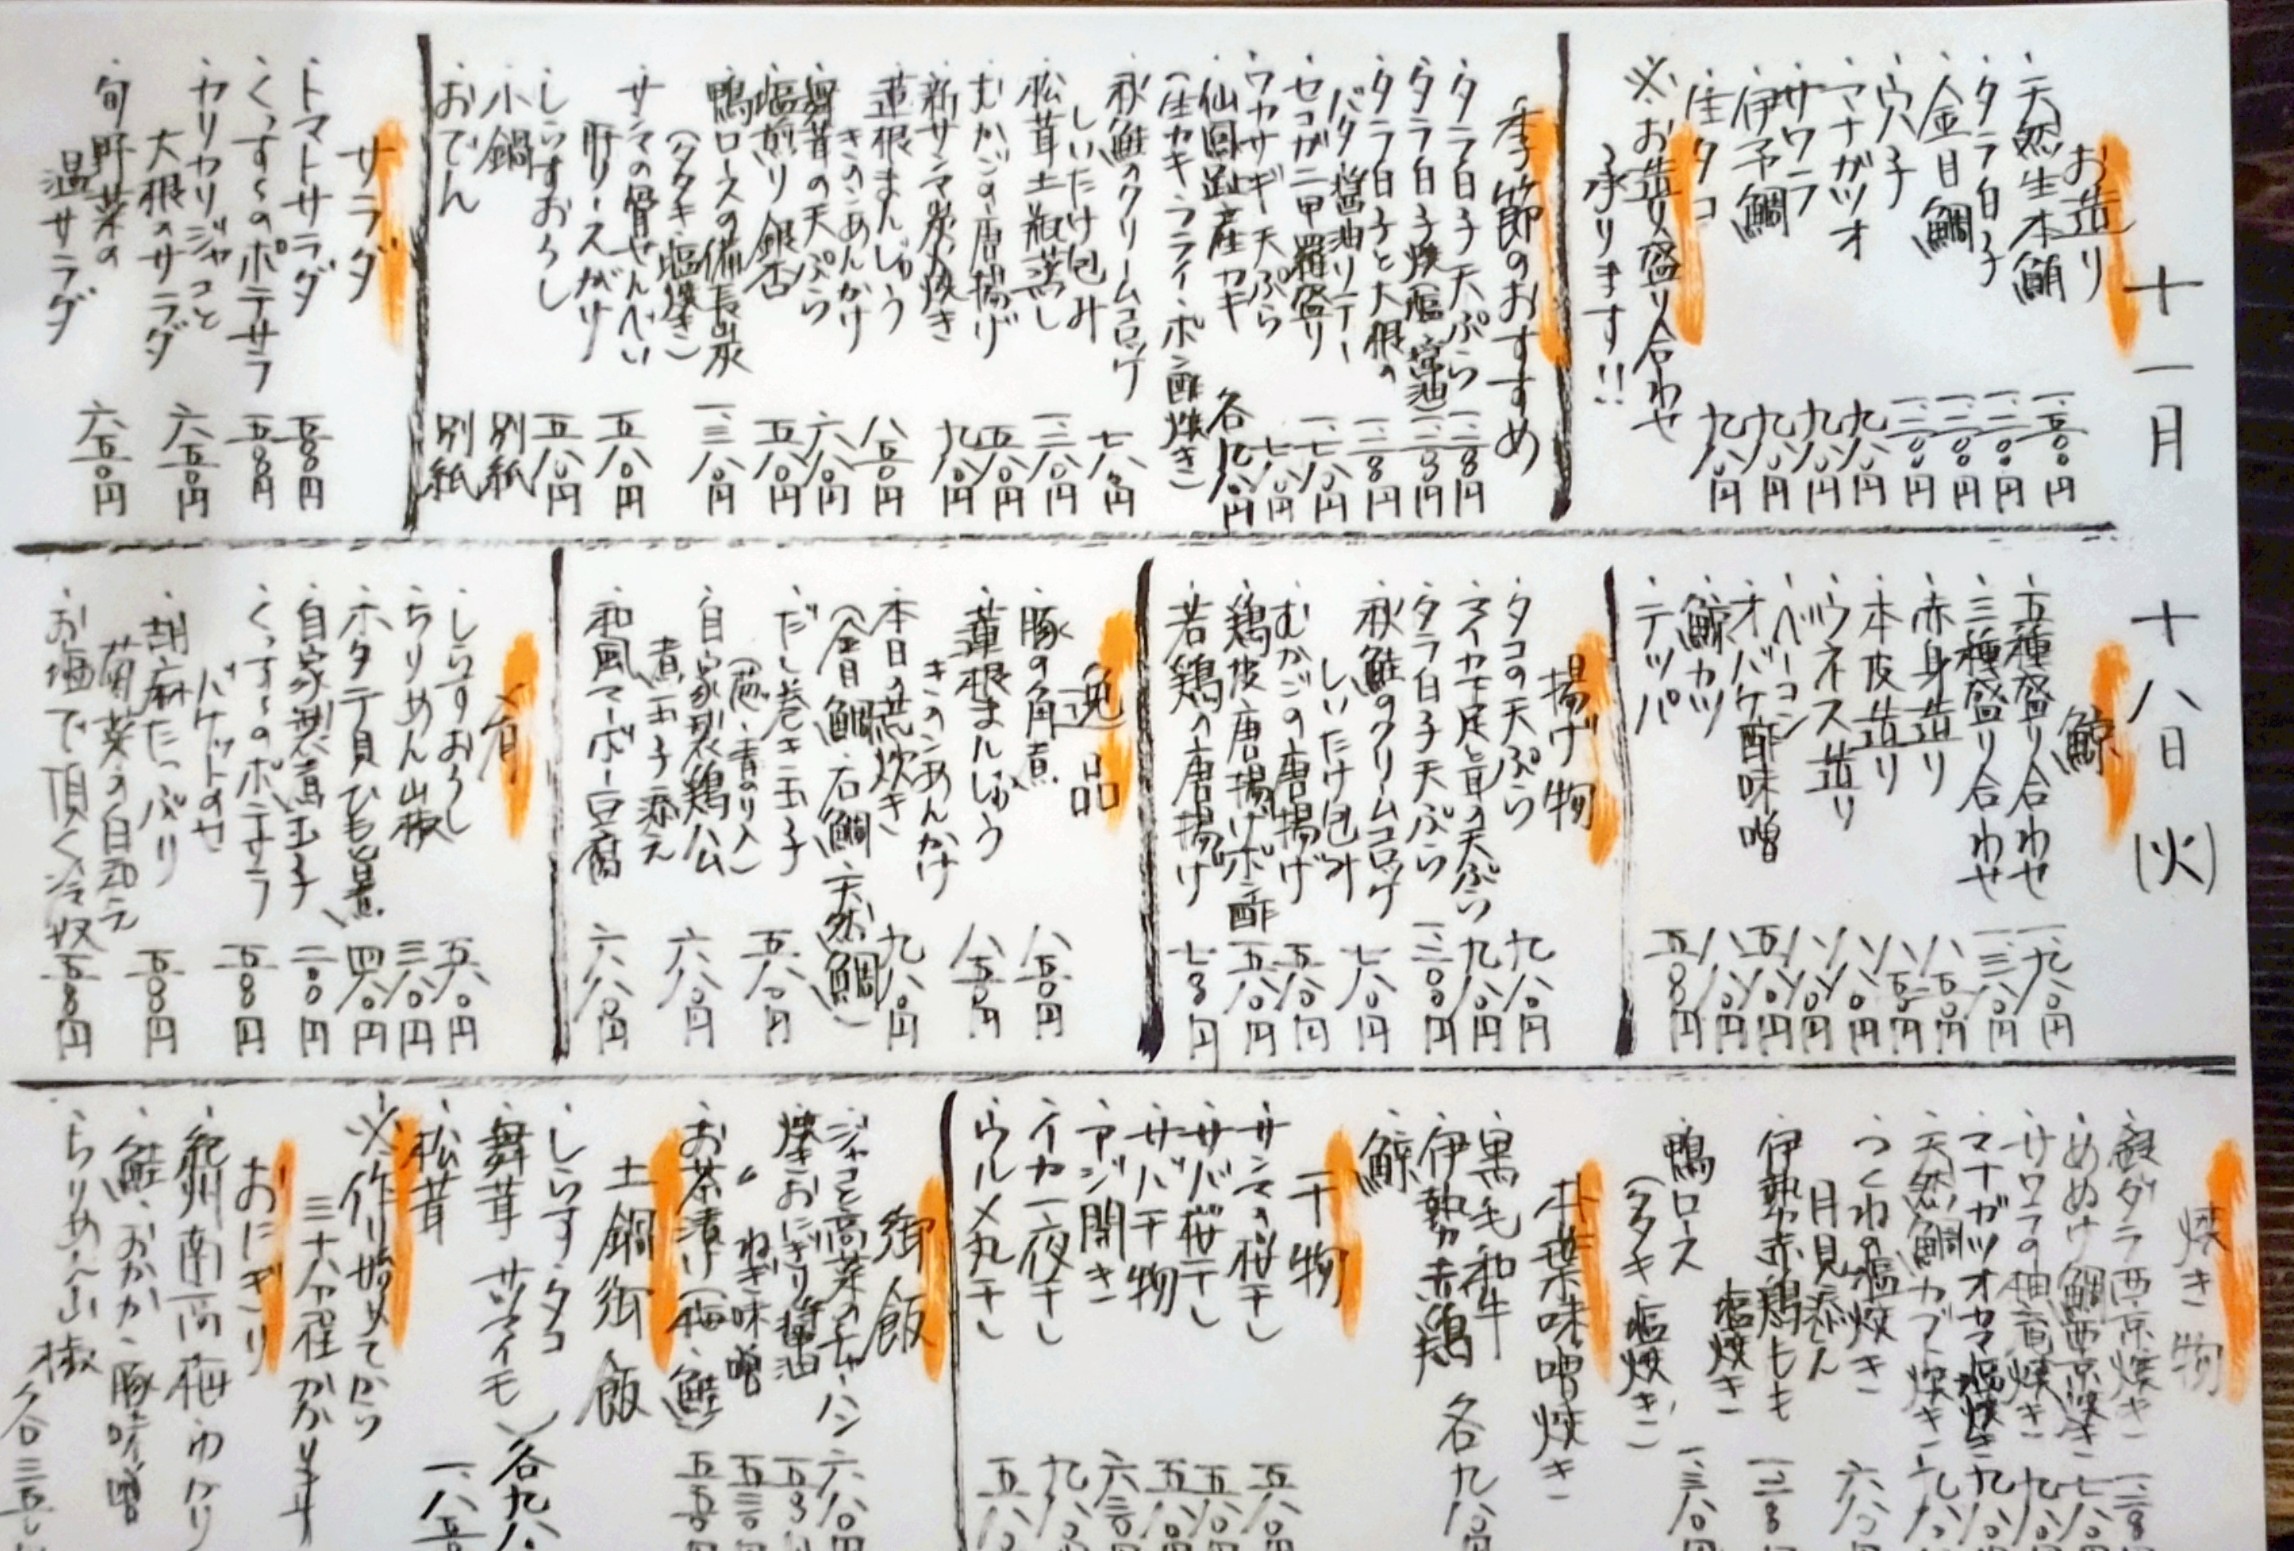 十一月 十八日(火)
お造り
・天然生本鮪 一、五〇〇円
・タラ白子 一、二〇〇円
・金目鯛 一、二〇〇円
・穴子 一、二〇〇円
・マナガツオ 九八〇円
・サワラ 九八〇円
・伊予鯛 九八〇円
・生タコ 九八〇円
※お造り盛り合わせ
承ります!!
季節のおすすめ
・タラ白子天ぷら
・タラ白子焼(塩、醤油)
・タラ白子と大根の
バター醤油ソテー
・セコガニ甲羅盛り 一、七八〇円
・ワカサギ天ぷら 七八〇円
・仙鳳趾産カキ 各九八〇円
(生カキ・フライ・ポン酢・焼き)
・秋鮭のクリームコロッケ
しいたけ包み 七八〇円
・松茸土瓶蒸し 一、二八〇円
・むかごの唐揚げ 五八〇円
・新サンマ炭火焼き 九八〇円
・蓮根まんじゅう
きのこあんかけ 八五〇円
・舞茸の天ぷら 六八〇円
・塩煎り銀杏 五八〇円
・鴨ロースの備長炭
(タタキ・塩焼き) 一、三八〇円
・サンマの骨せんべい
肝ソースがけ 五八〇円
・しらすおろし 五八〇円
・小鍋 別紙
・おでん 別紙
サラダ
・トマトサラダ 五〇〇円
・くっすぅのポテサラ 五〇〇円
・カリカリジャコと
大根のサラダ 六五〇円
・旬野菜の
温サラダ 六五〇円
鯨
・五種盛り合わせ 一、九八〇円
・三種盛り合わせ 一、三八〇円
・赤身造り 八五〇円
・本皮造り 八五〇円
・ウネス造り 八八〇円
・ベーコン 八八〇円
・オバケ酢味噌 五八〇円
・鯨カツ 八八〇円
・テッパ 五八〇円
揚げ物
・タコの天ぷら 九八〇円
・マイカ下足と耳の天ぷら 九八〇円
・タラ白子天ぷら
・秋鮭のクリームコロッケ
しいたけ包み 七八〇円
・むかごの唐揚げ 五八〇円
・鶏皮唐揚げポン酢 五八〇円
・若鶏の唐揚げ
逸品
・豚の角煮 八五〇円
・蓮根まんじゅう
きのこあんかけ 八五〇円
・本日の荒炊き 九八〇円
(金目鯛・石鯛・天然鯛)
・だし巻き玉子
(葱・青のり入) 五八〇円
・自家製鶏ハム
煮玉子添え 六八〇円
・和風マーボー豆腐 六八〇円
〆肴
・しらすおろし 五八〇円
・ちりめん山椒 三八〇円
・ホタテ貝ひも旨煮 四八〇円
・自家製煮玉子 二〇〇円
・くっすぅのポテサラ
バケットのせ 五〇〇円
・胡麻たっぷり
菊菜の白和え 五〇〇円
・お塩で頂く冷奴
焼き物
・銀ダラ西京焼き
・めぬけ鯛西京焼き
・サワラの柚庵焼き
・マナガツオカマ塩焼き
・天然鯛カブト焼き
・つくねの塩焼き
月見添え
・伊勢赤鶏もも
塩焼き
・鴨ロース
(タタキ・塩焼き)
朴葉味噌焼き
・黒毛和牛
・伊勢赤鶏
・鯨
各九八〇円
干物
・サンマの桜干し
・サバ桜干し
・サバ干物
・アジ開き
・イカ一夜干し
・ウルメ丸干し
御飯
・ジャコと高菜のチャーハン
・焼きおにぎり 醤油
〃 ねぎ味噌
・お茶漬け(梅・鮭)
土鍋御飯
・しらす・タコ
・舞茸 サツマイモ
・松茸
※作り始めてから
三十八分程かかります
おにぎり
・紀州南高梅・ゆかり
・鮭・おかか・豚味噌
・ちりめん山椒